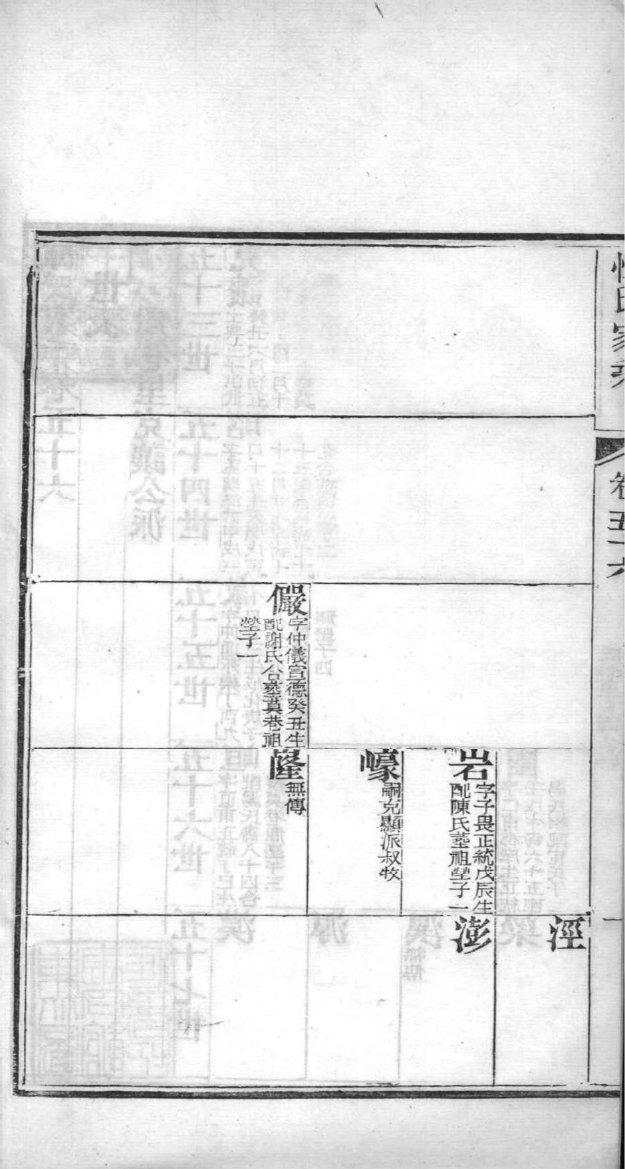 惲氏家乘
卷五十六
涇
岩
字子畏正統戊辰生
配陳氏葬祖塋子一
澎
㠙
嗣克顯派叔牧
儼
字仲儀宣德癸丑生
配謝氏合葬真巷祖
塋子一
隆
無傳